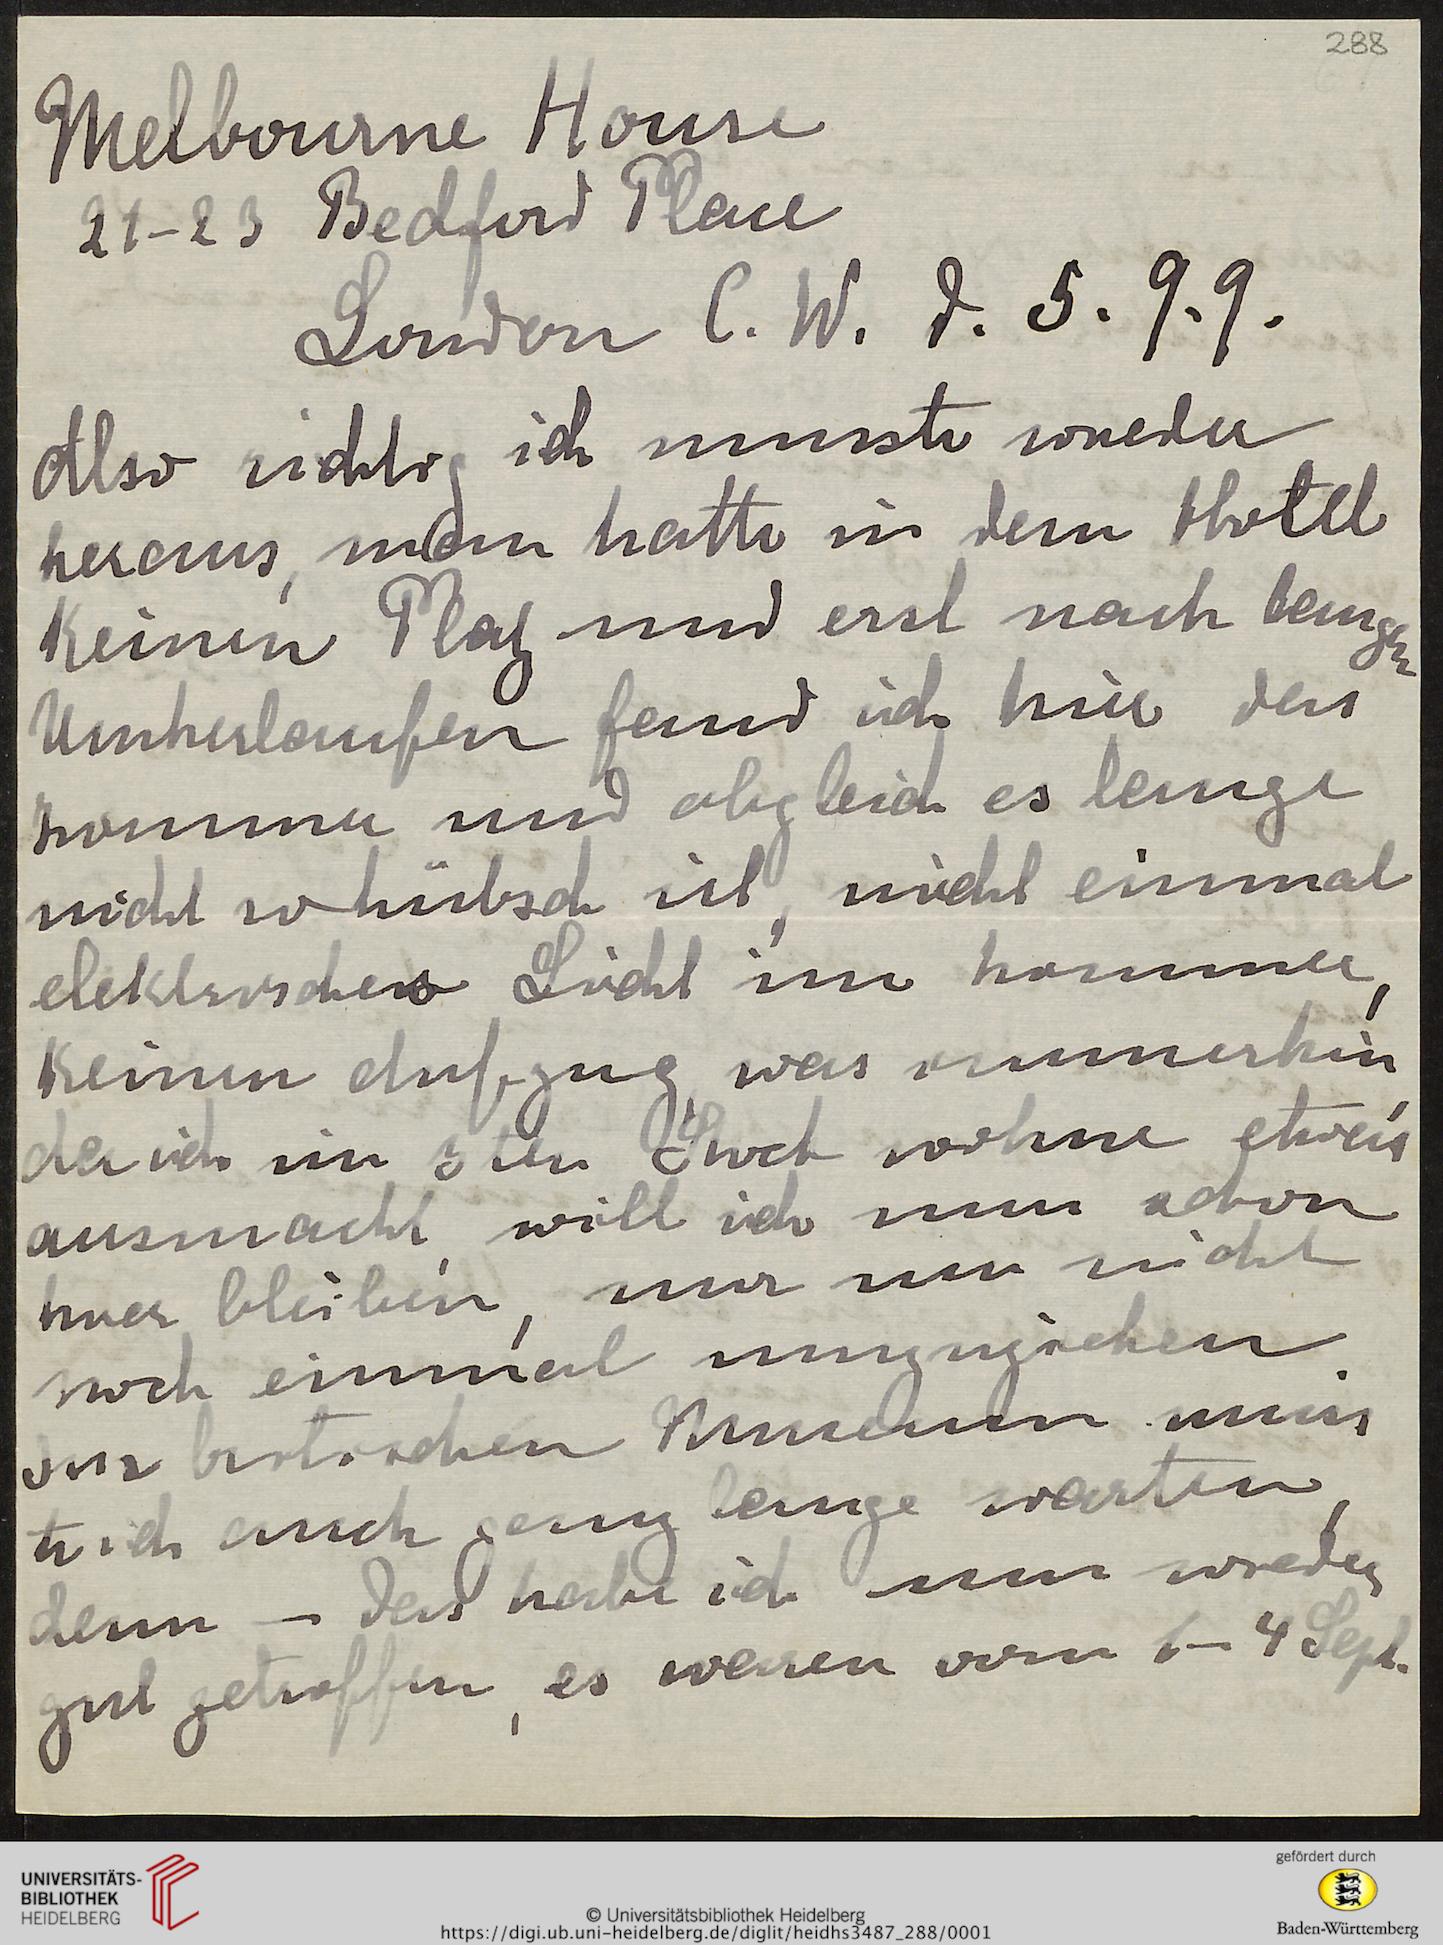 288
Melbourne House
21-23 Bedford Place
London C. W. d. 5. 9. 9.
Also richtig ich musste wieder
heraus, man hatte in dem Hotel
keinen Platz und erst nach langen
Umherlaufen fand ich hier das
Kommer und obgleich es lange
nicht so hübsch ist, nicht einmal
elektrisches Licht im Kommer,
keinen Aufzug, was immerhin
da ich im 3ten Stock wohne etwas
ausmacht, will ich nun schon
hier bleiben, nur um nicht
noch einmal umzuziehen.
Im britischen Museum muss
te ich auch ganz lange warten,
denn — das habe ich nun wieder
gut getroffen, es waren vom 1- 4 Sept.
UNIVERSITÄTS-
BIBLIOTHEK
HEIDELBERG
© Universitätsbibliothek Heidelberg
https://digi.ub.uni-heidelberg.de/diglit/heidhs3487_288/0001
gefördert durch
Baden-Württemberg